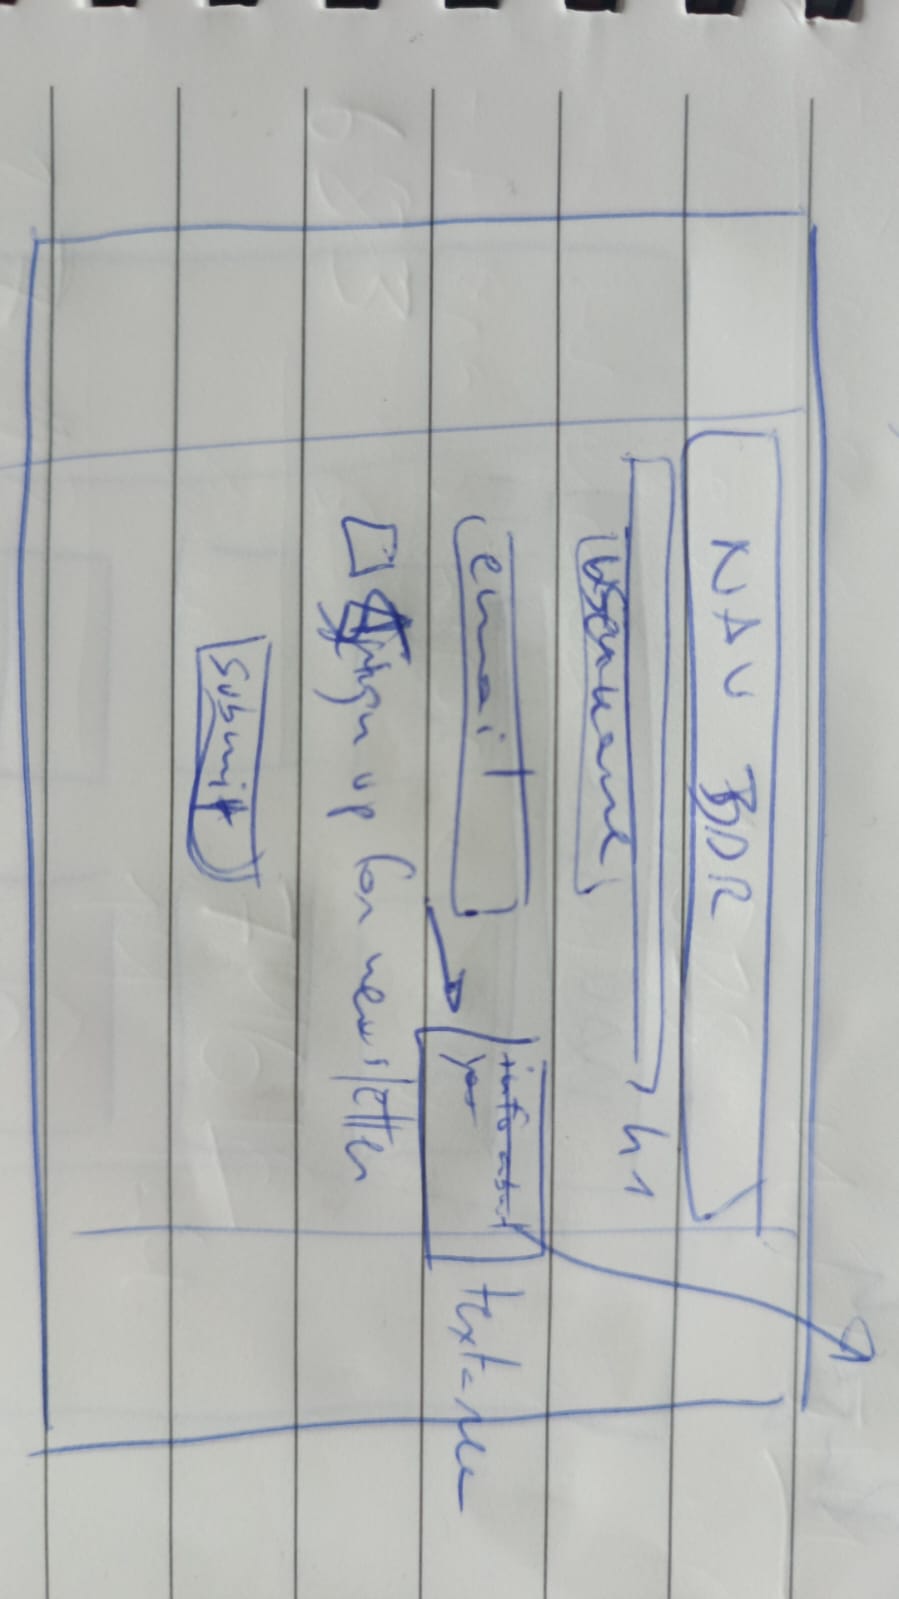 NAV BAR
h1
username
email
info about
you
textarea
sign up for newsletter
submit